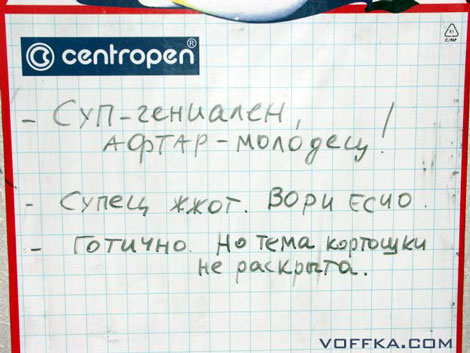 centropen®
- Суп-гениален,
афтар-молодец!
- Супец жжот. Вори есчо.
- Готично. Но тема кортошки
не раскрыта.
VOFFKA.COM